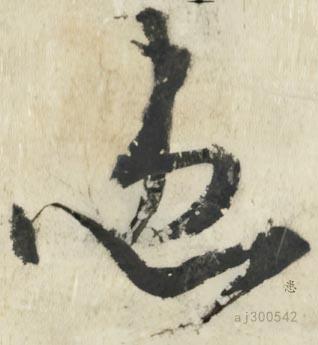 恚
aj300542